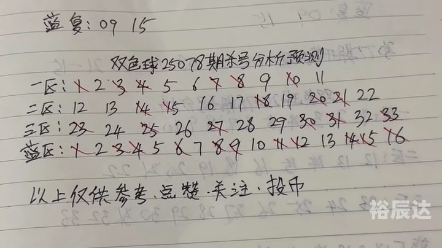 蓝复:09 15
双色球25078期杀号分析预测
一区:1 2 3 4 5 6 7 8 9 10 11
二区:12 13 14 15 16 17 18 19 20 21 22
三区:23 24 25 26 27 28 29 30 31 32 33
蓝区:1 2 3 4 5 6 7 8 9 10 11 12 13 14 15 16
以上仅供参考.点赞.关注.投币
裕辰达